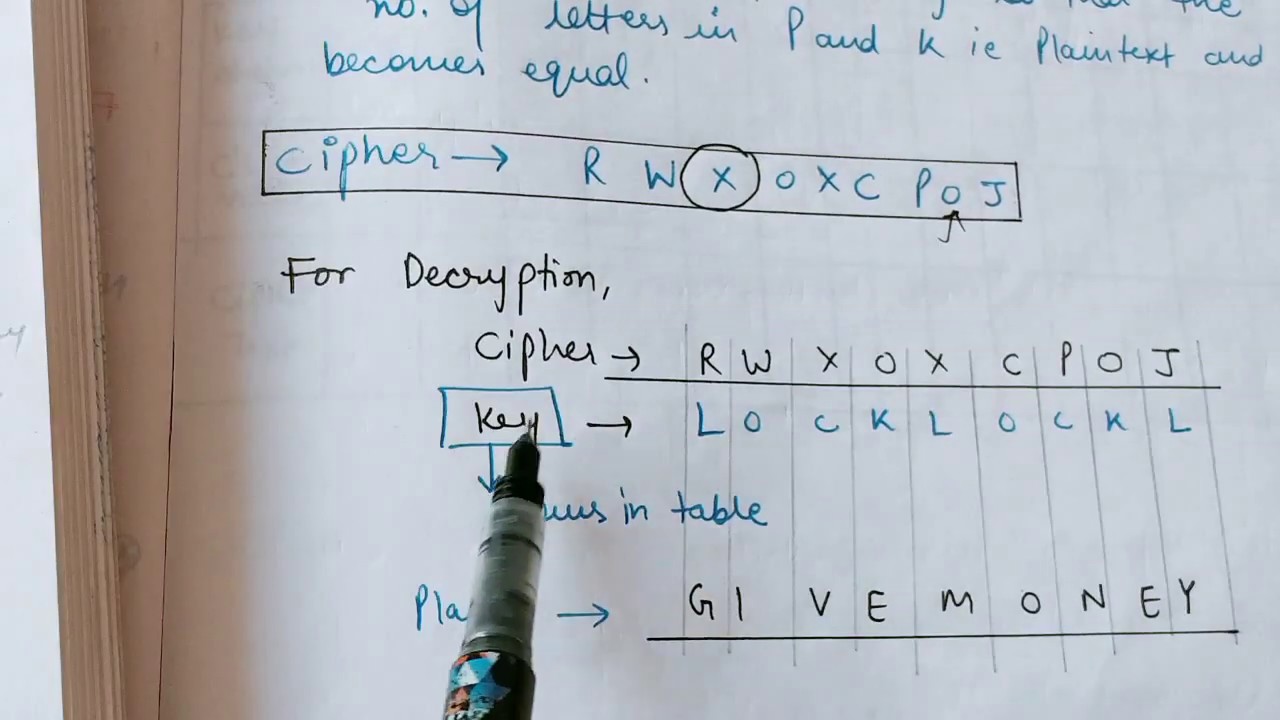 no. of letters in P and K ie Plaintext and
becomes equal.
Cipher → R W X O X C P O J
For Decryption,
Cipher → R W X O X C P O J
Key → L O C K L O C K L
in table
→ G I V E M O N E Y